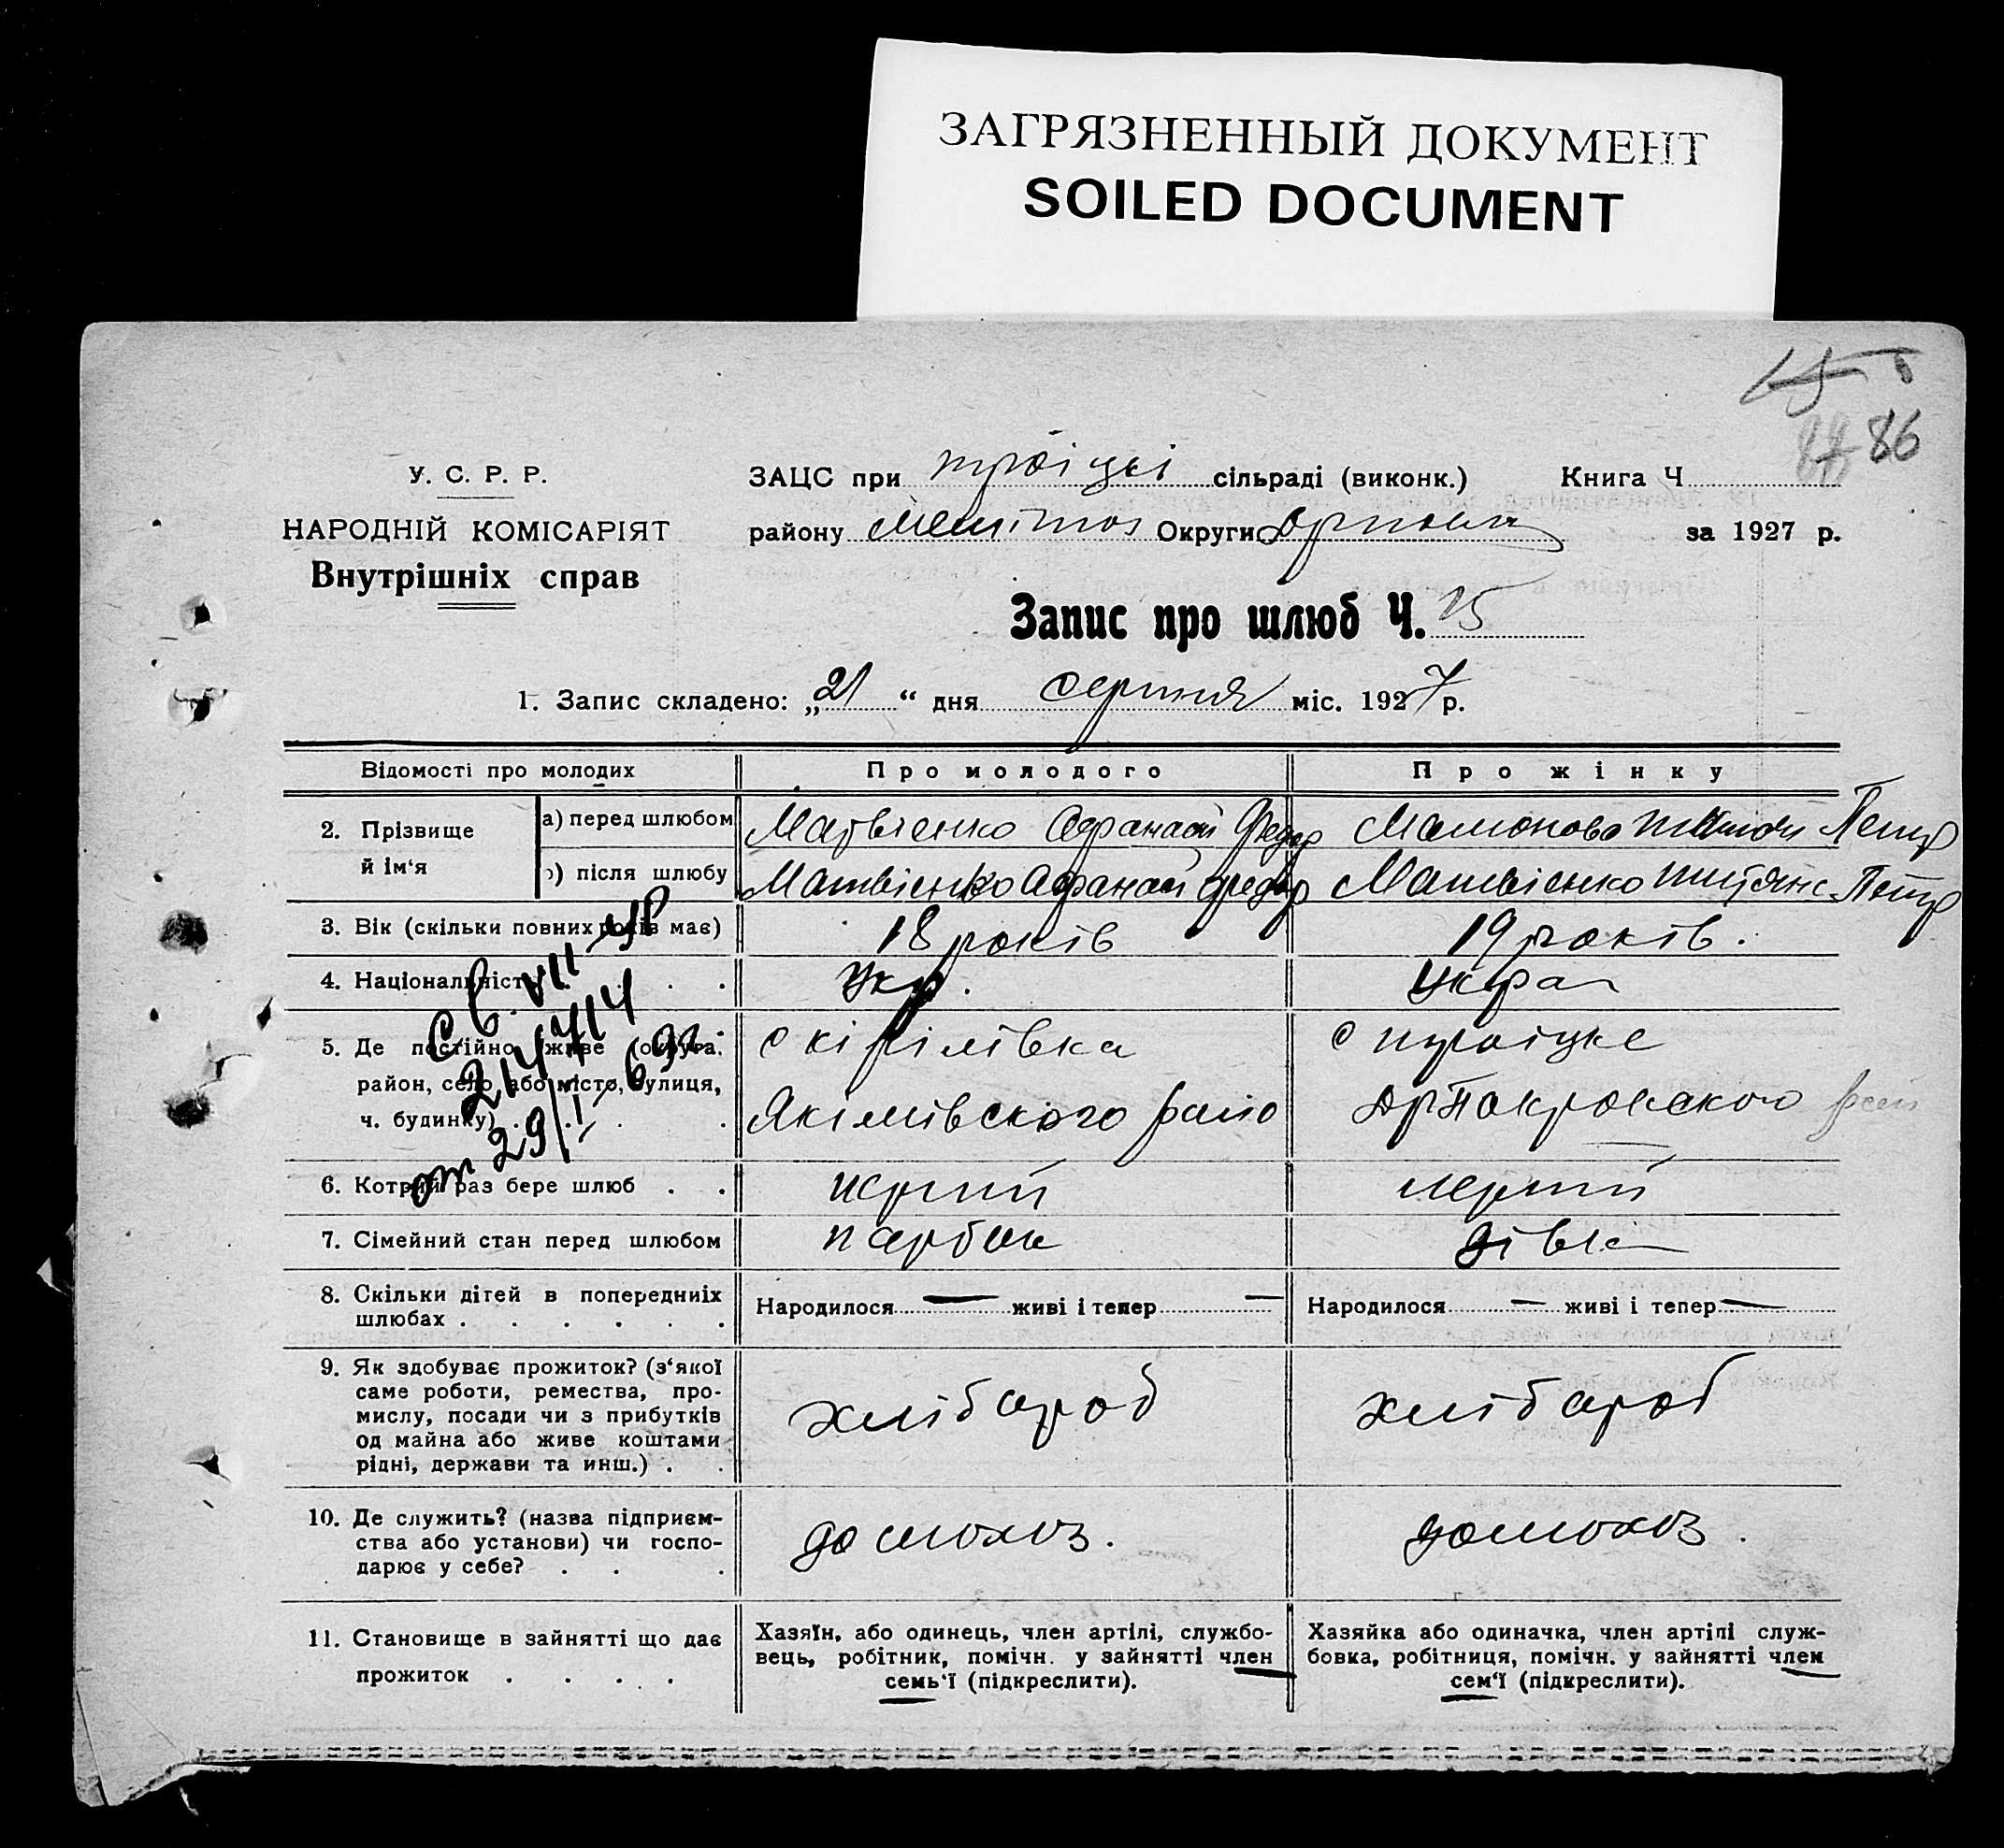 ЗАГРЯЗНЕННЫЙ ДОКУМЕНТ
SOILED DOCUMENT
86
У. С. Р. Р.
НАРОДНІЙ КОМІСАРІЯТ
Внутрішніх справ
ЗАЦС при троіцкі сільраді (виконк.) Книга Ч
району Меліпос Округи за 1927 р.
Запис про шлюб Ч. 15
1. Запис складено: „21“ дня серпня міс. 1927 р.
Відомості про молодих Про молодого Про жінку
2. Прізвище й ім‘я
а) перед шлюбом Матвіенко Афанасій Федор Мамонова Петр
б) після шлюбу Матвіенко Афанасй Федор Матвіенко Титяна Петр
3. Вік (скільки повних років має) 18 років 19 років.
4. Національність Укр. Украп
5. Де постійно живе (округа, район, село або місто, вулиця, ч. будинку)
с кірілівка
Якімівского раіо
с троіцке
6. Котрий раз бере шлюб перший перший
7. Сімейний стан перед шлюбом парбок дівка
8. Скільки дітей в попередниіх шлюбах
Народилося — живі і тепер —
Народилося — живі і тепер —
9. Як здобуває прожиток? (з‘якої
саме роботи, ремества, про-
мислу, посади чи з прибутків
од майна або живе коштами
рідні, держави та инш.)
хлібароб хлібароб
10. Де служить? (назва підприєм-
ства або установи) чи госпо-
дарює у себе?
домохоз. домохоз.
11. Становище в зайнятті що дає
прожиток
Хазяїн, або одинець, член артілі, службо-
вець, робітник, помічн. у зайнятті член
семь‘ї (підкреслити).
Хазяйка або одиначка, член артілі служ-
бовка, робітниця, помічн. у зайнятті член
сем‘ї (підкреслити).
С. б. VII-УР
214714
от 29/I 692.